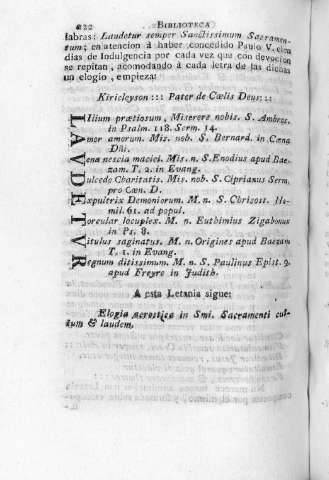 222 BIBLIOTECA
labras: Laudetur semper Sanctissimum Sacramen-
tum; en atencion à haber concedido Paulo V. cien
dias de Indulgencia por cada vez que con devocion
se repitan, acomodando à cada letra de las dichas
un elogio, empieza:
Kirieleyson ::: Pater de Cœlis Deus: ::
Lilium prætiosum, Miserere nobis. S. Ambros.
in Psalm. 118. Serm. 14.
Amor amorum. Mis. nob. S. Bernard. in Cœna
Dñi.
Vena nescia maciei. Mis. n. S. Enodius apud Bae-
zam. T. 2. in Evang.
Dulcedo Charitatis. Mis. nob. S. Ciprianus Serm.
pro Cœn. D.
Expultrix Demoniorum. M. n. S. Chrisost. Ho-
mil. 61. ad popul.
Torcular locuplex. M. n. Euthimius Zigabonus
in Ps. 8.
Vitulus saginatus. M. n. Origines apud Baezam
T. 1. in Evang.
Regnum ditissimum. M. n. S. Paulinus Epist. 9.
apud Freyre in Judith.
A esta Letania sigue:
Elogia acrostica in Smi. Sacramenti cul-
tum & laudem.